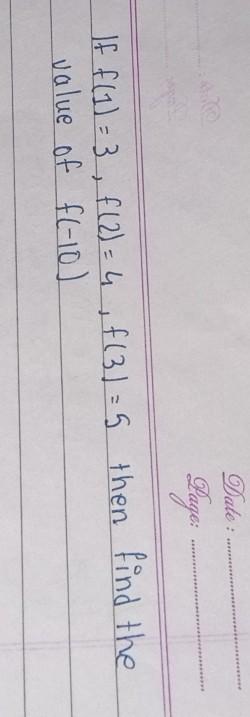 Date : ..........................
Page: ..........................
If f(1) = 3 , f(2) = 4 , f(3) = 5 then find the
value of f(-10)